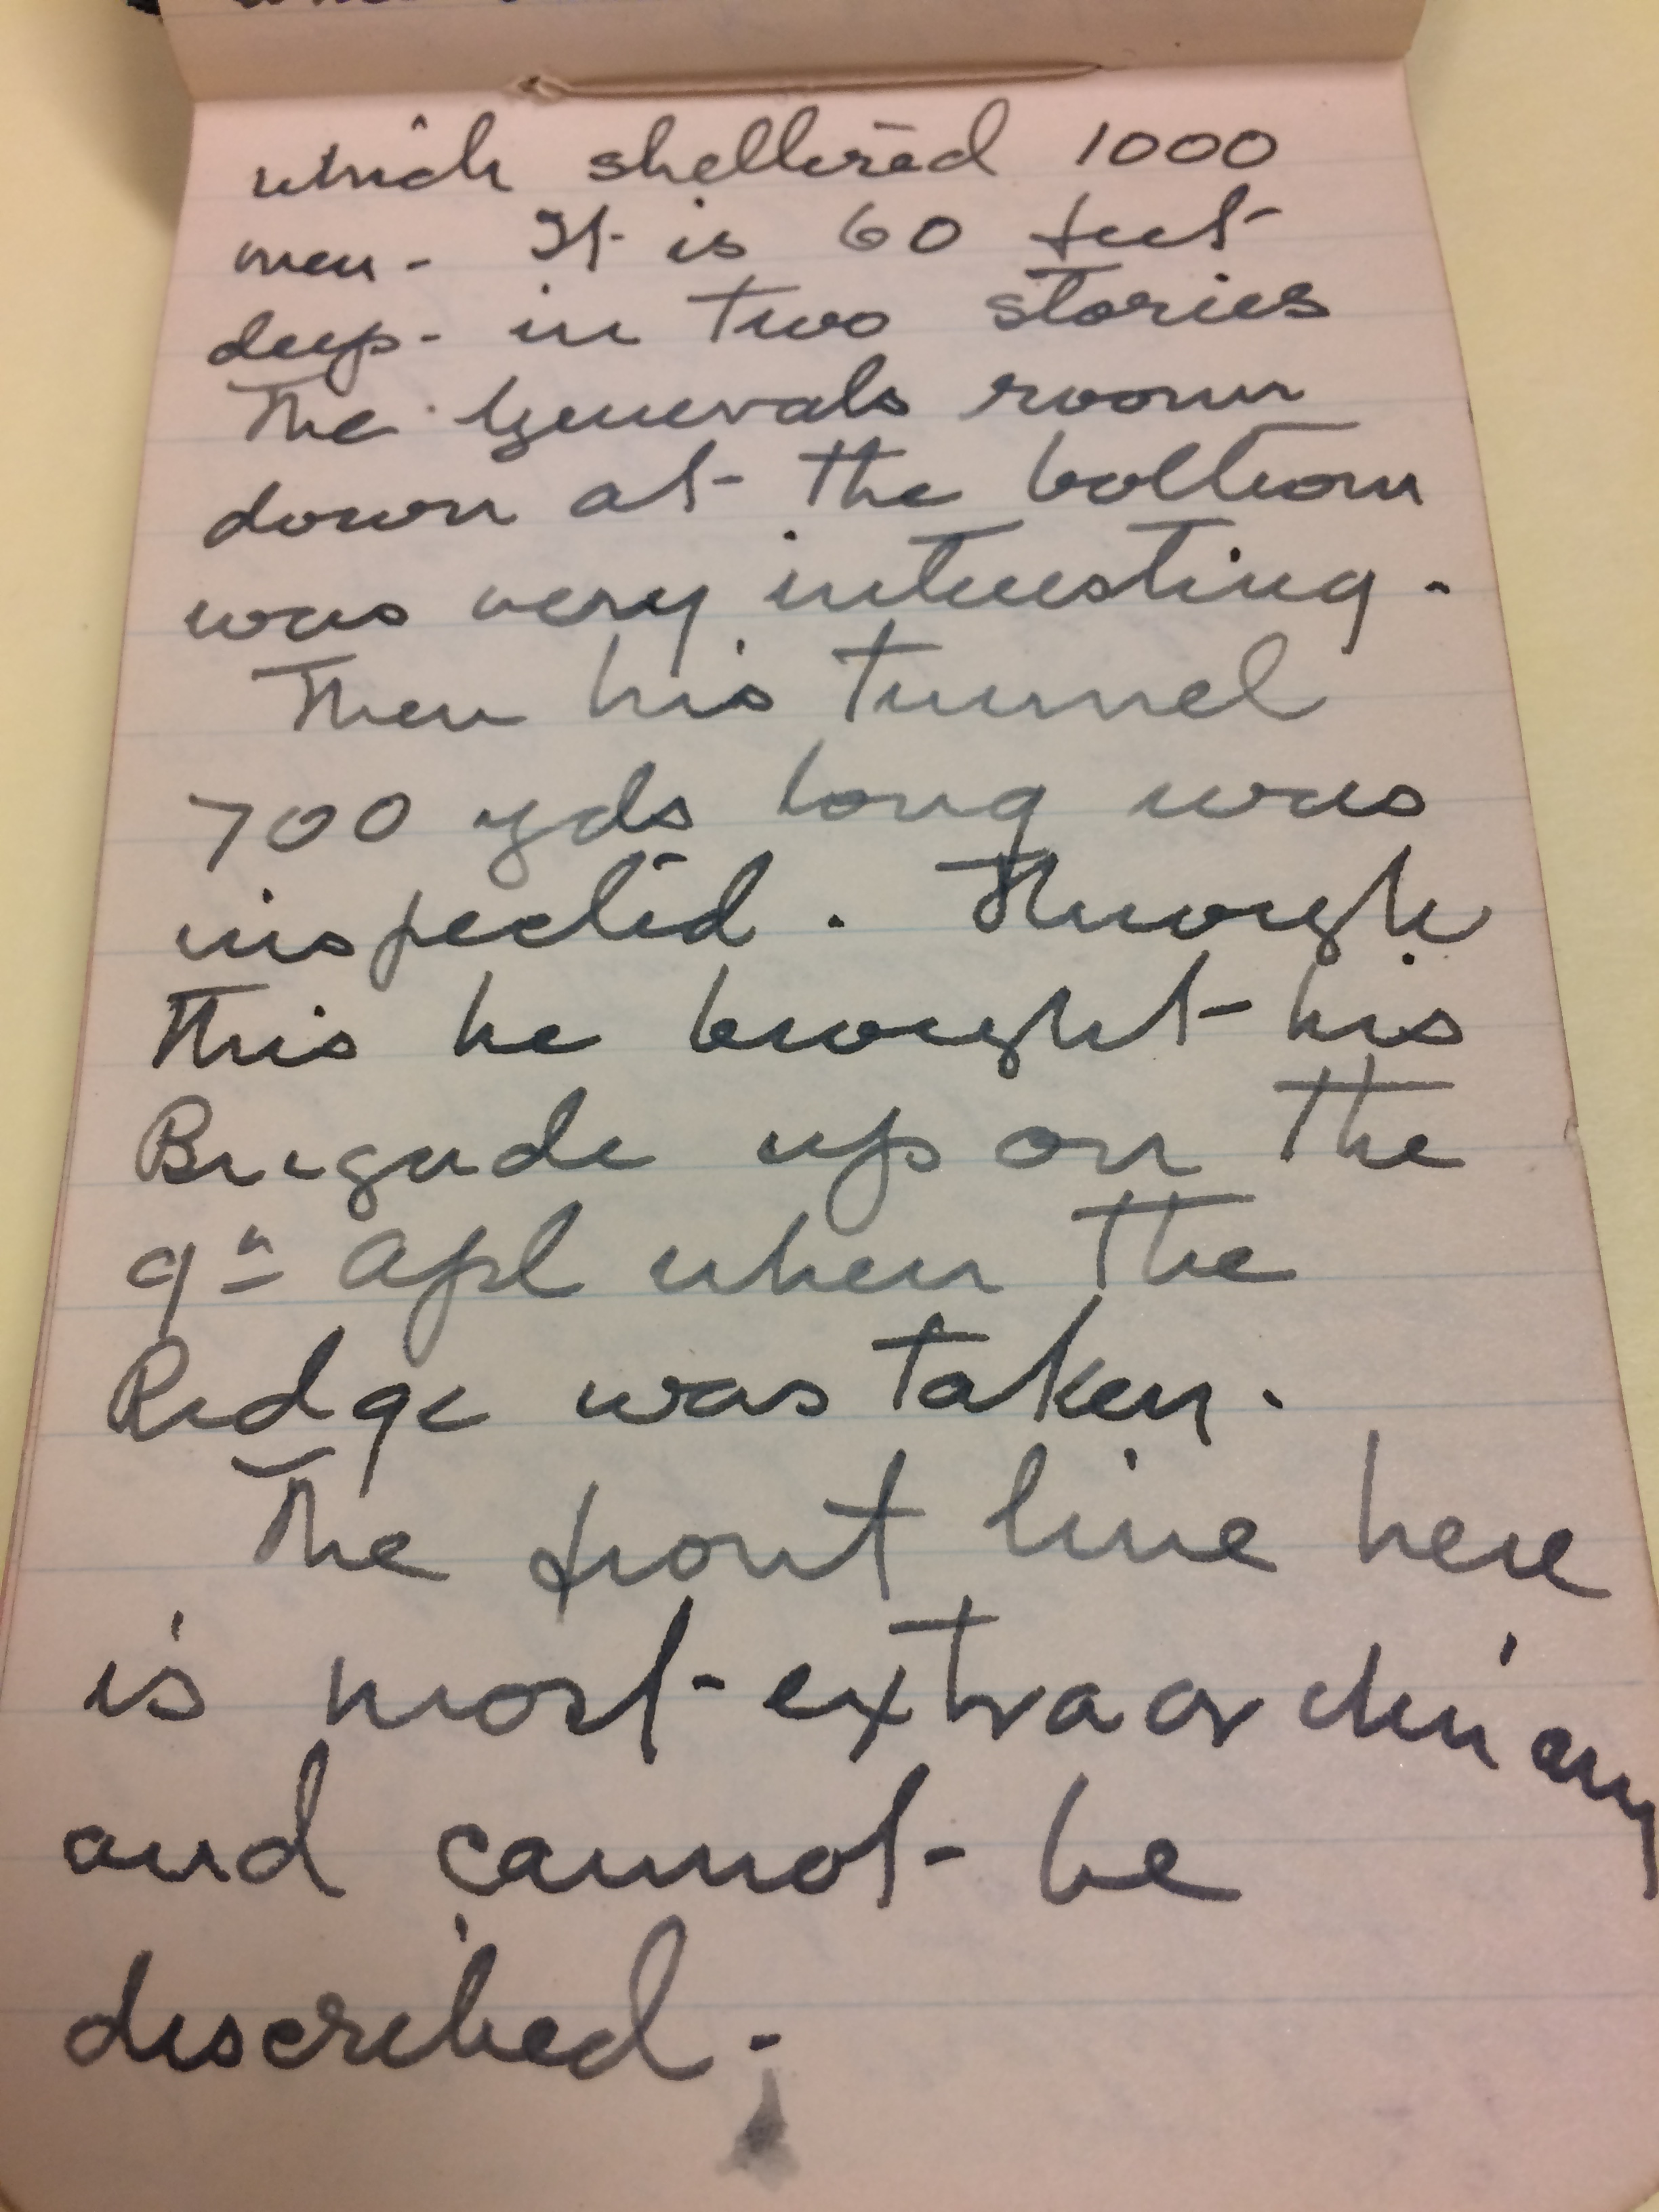 which sheltered 1000
men - It is 60 feet
deep - in two stories
The Generals room
down at the bottom
was very interesting.
Then his tunnel
700 yds long was
inspected. Through
this he brought his
Brigade up on the
9th Apl when the
Ridge was taken.
The front line here
is most extraordinary
and cannot be
discribed -